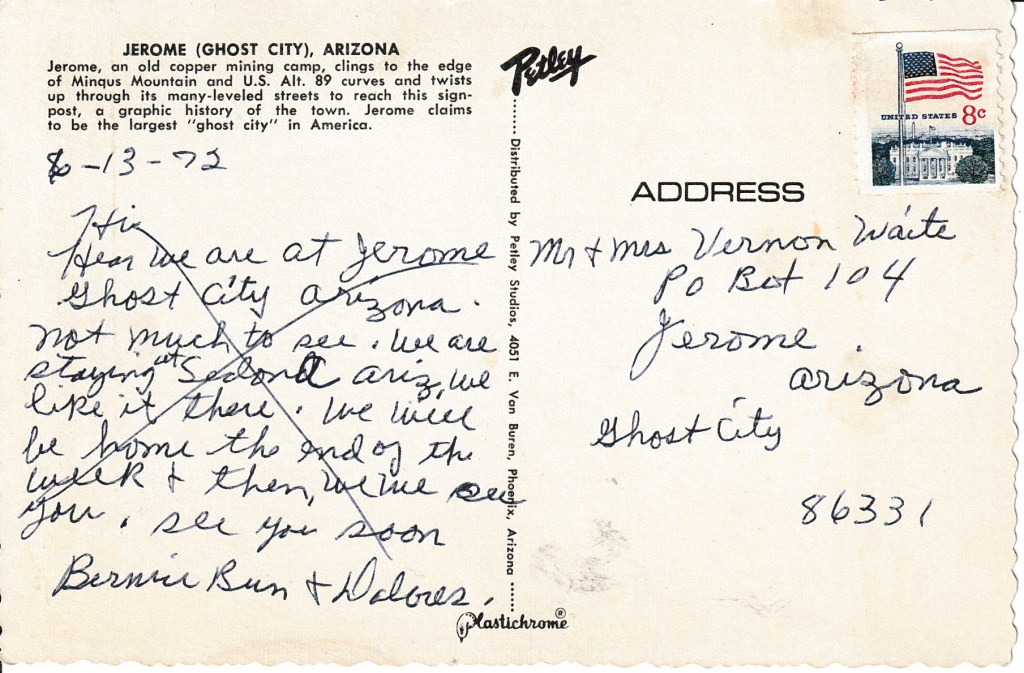 JEROME (GHOST CITY), ARIZONA
Jerome, an old copper mining camp, clings to the edge
of Mingus Mountain and U.S. Alt. 89 curves and twists
up through its many-leveled streets to reach this sign-
post, a graphic history of the town. Jerome claims
to be the largest "ghost city" in America.
6-13-72
Hi
Hear we are at Jerome
Ghost City Arizona.
not much to see. We are
staying at Sedona Ariz, we
like it there. We will
be home the end of the
week & then, we see
you. see you soon
Bernie Bun & Dolores.
Petley
Distributed by Petley Studios, 4051 E. Van Buren, Phoenix, Arizona
Plastichrome®
UNITED STATES 8c
ADDRESS
Mr & Mrs Vernon Waite
PO Box 104
Jerome.
Arizona
Ghost City
86331